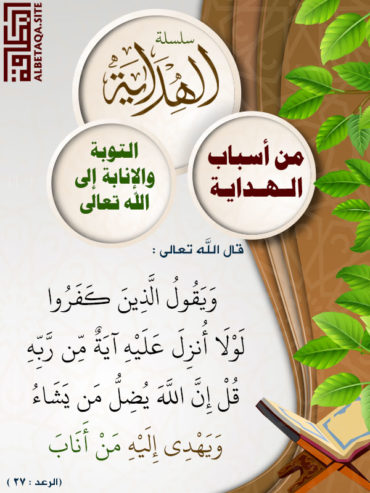 ALBETAQA.SITE
سلسلة
الهداية
من أسباب
الهداية
التوبة
والإنابة إلى
الله تعالى
قال الله تعالى :
وَيَقُولُ الَّذِينَ كَفَرُوا
لَوْلَا أُنزِلَ عَلَيْهِ آيَةٌ مِّن رَّبِّهِ
قُلْ إِنَّ اللَّهَ يُضِلُّ مَن يَشَاءُ
وَيَهْدِى إِلَيْهِ مَنْ أَنَابَ
(الرعد : ٢٧ )